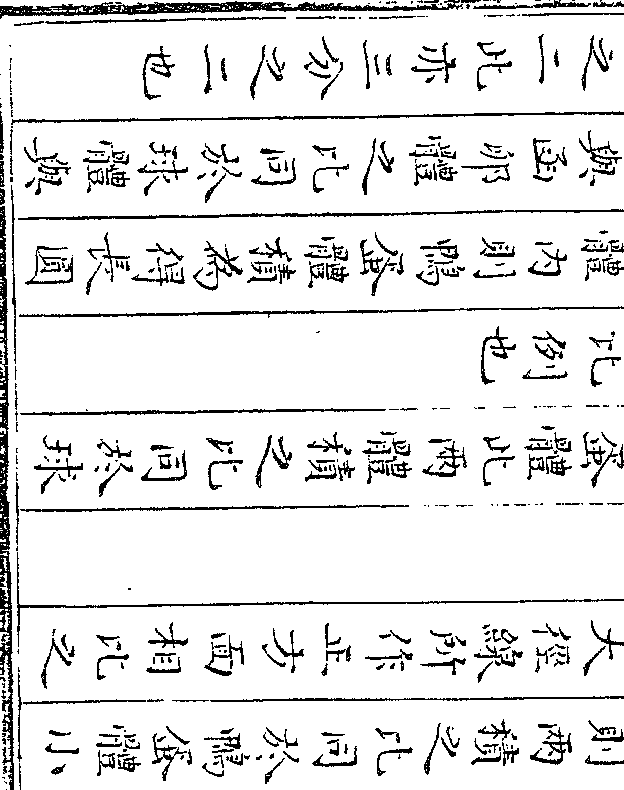 則兩積之比同於鴨蛋體小
大徑線所作正方面相比之
蛋體此兩體積之比同於球
比例也
體內則鴨蛋體積為得長圓
與函卵體之比同於球體與
之二此亦三分之二也